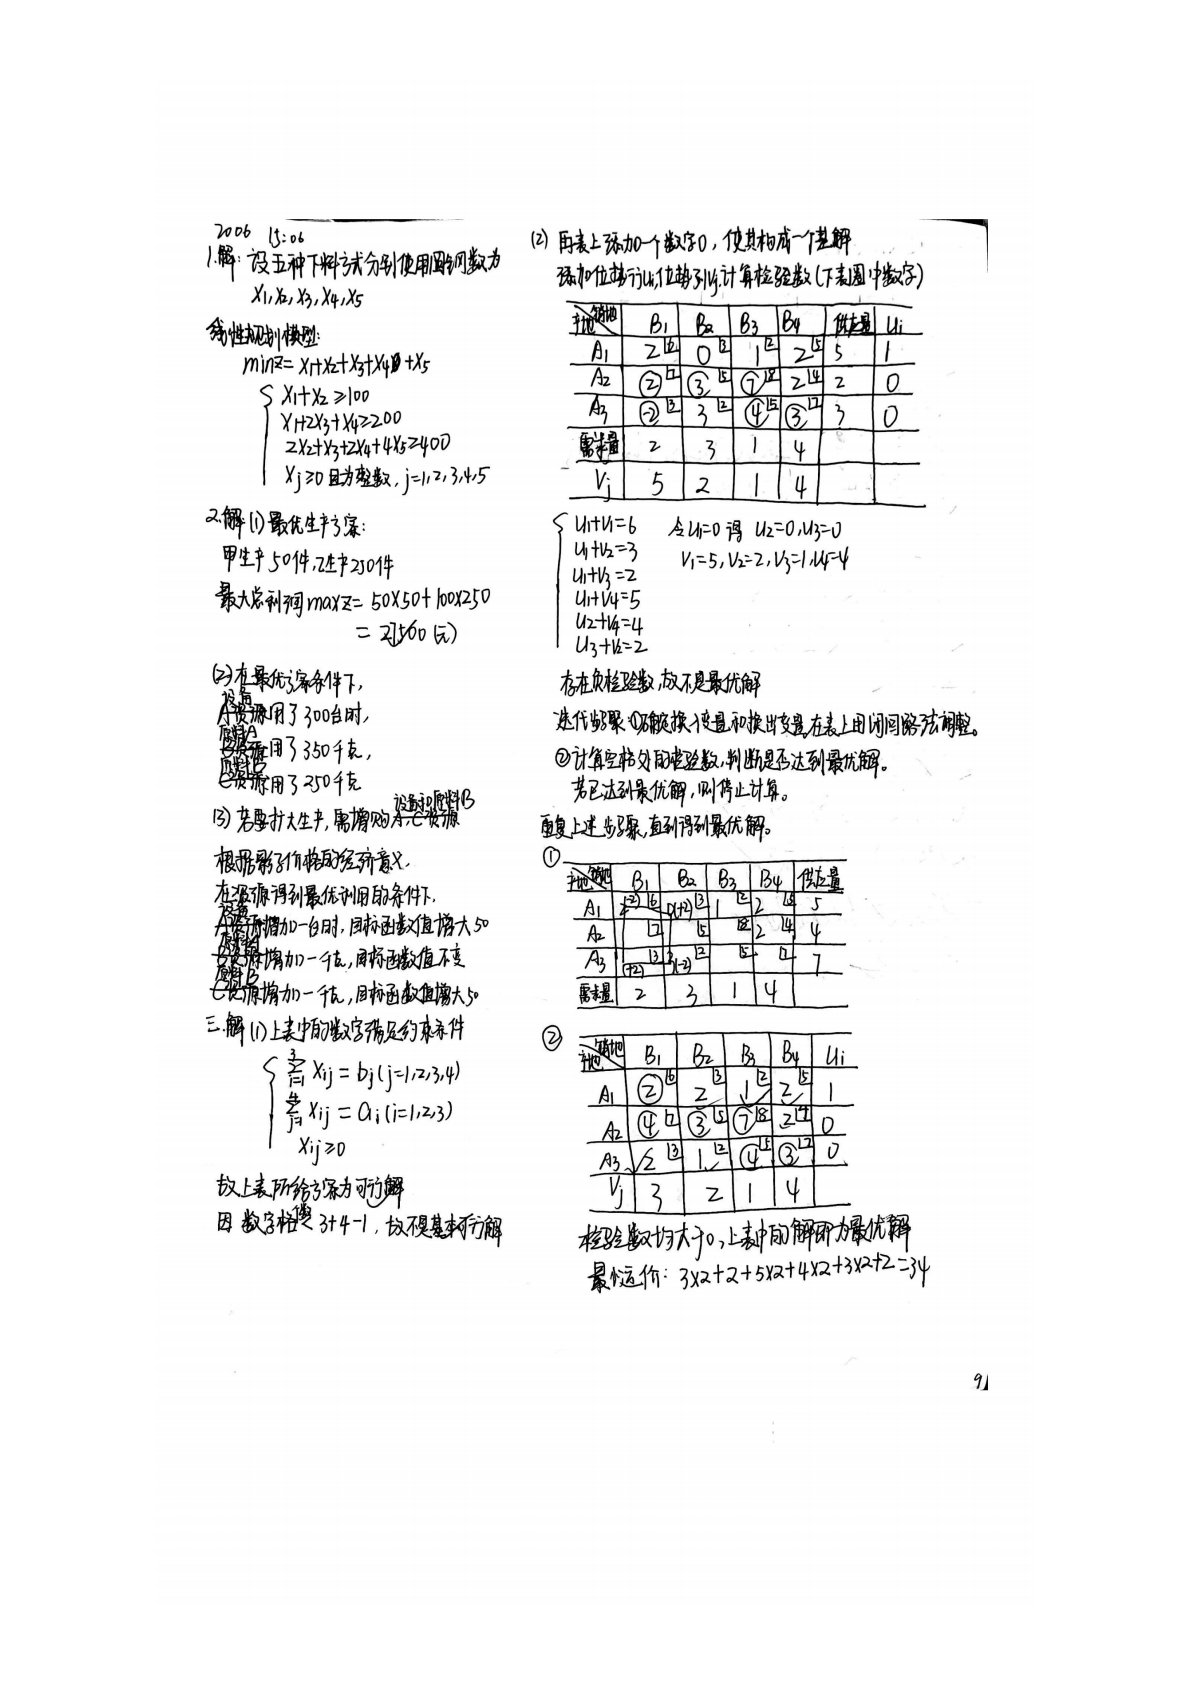 2006 15:06
1.解: 设五种下料方式分别使用圆钢数为
x1,x2,x3,x4,x5
线性规划模型:
minz=x1+x2+x3+x4+x5
x1+x2≥100
x1+2x3+x4≥200
2x2+x3+2x4+4x5≥400
xj≥0且为整数,j=1,2,3,4,5
2.解(1)最优生产方案:
甲生产50件,乙生产250件
最大总利润maxz=50×50+100×250
=27500(元)
(2)在最优方案条件下,
设备
A资源用了300台时,
原料A
B资源用了350千克,
原料B
C资源用了250千克
设备和原料B
(3)若要扩大生产,需增购A、C资源
根据影子价格的经济意义,
在资源得到最优利用的条件下,
设备
A资源增加一台时,目标函数值增大50
原料A
B资源增加一千克,目标函数值不变
原料B
C资源增加一千克,目标函数值增大50
三.解(1)上表中的数字满足约束条件
3∑i=1 xij=bj(j=1,2,3,4)
4∑j=1 xij=ai(i=1,2,3)
xij≥0
故上表所给方案为可行解
因数字格 < 3+4-1,故不是基本可行解
(2)再表上添加一个数字0,使其构成一个基解
添加位势行ui,位势列vj,计算检验数(下表圈中数字)
产地 销地 B1 B2 B3 B4 供应量 ui
A1 2 6 0 3 1 2 2 5 5 1
A2 ② 7 ③ 5 ⑦ 8 2 4 2 0
A3 -2 3 3 2 ④ 5 ③ 7 3 0
需求量 2 3 1 4
Vj 5 2 1 4
u1+v1=6 令u1=0得 u2=0,u3=0
u1+v2=3 v1=5,v2=2,v3=1,v4=4
u1+v3=2
u1+v4=5
u2+v4=4
u3+v2=2
存在负检验数,故不是最优解
迭代步骤:①确定换入变量和换出变量,在表上用闭回路法调整。
②计算空格处的检验数,判断是否达到最优解。
若已达到最优解,则停止计算。
重复上述步骤,直到得到最优解。
①
产地 销地 B1 B2 B3 B4 供应量
A1 2(-2) 6 0(+2) 3 1 2 2 5 5
A2 7 5 8 2 4 4
A3 (+2) 3 3(-2) 2 5 7 7
需求量 2 3 1 4
②
产地 销地 B1 B2 B3 B4 ui
A1 ② 6 2 3 1 2 2 5 1
A2 ④ 7 ③ 5 ⑦ 8 2 4 0
A3 2 3 1 2 ④ 5 ③ 7 0
Vj 3 2 1 4
检验数均大于0,上表中的解即为最优解
最小运价: 3×2+2+5×2+4×2+3×2+2=34
91